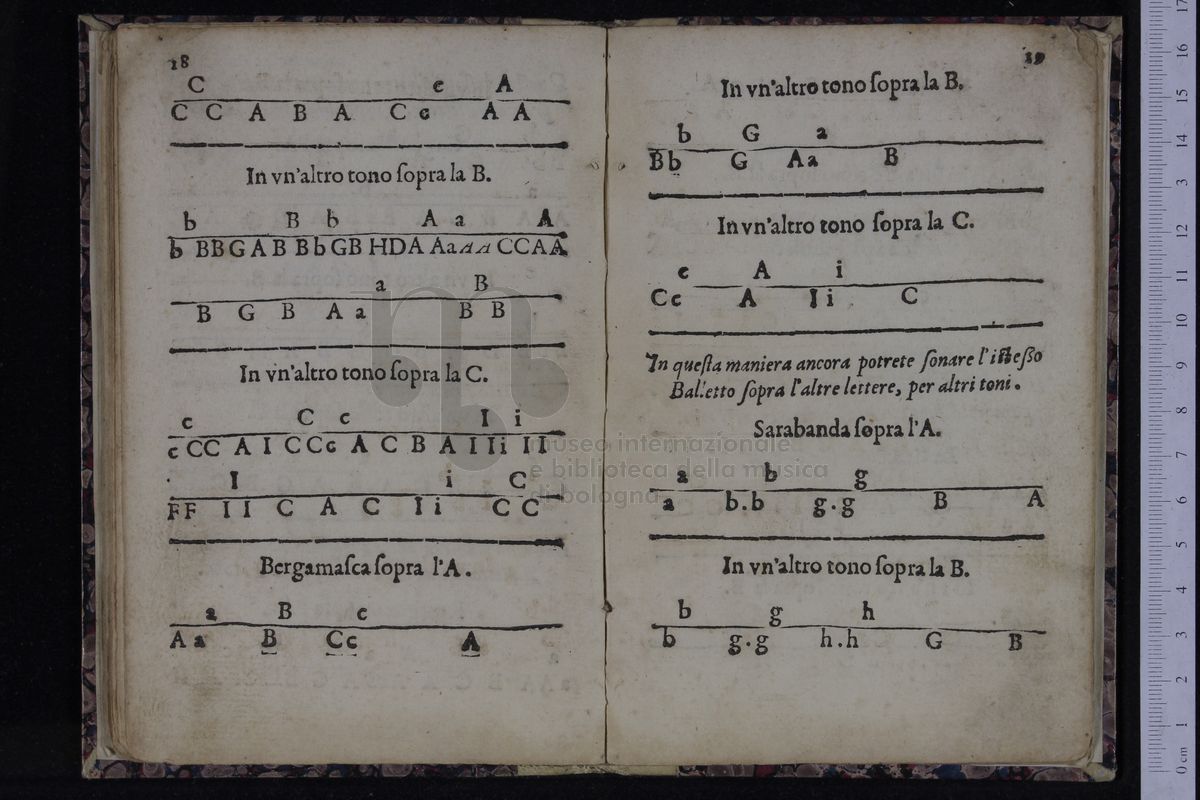 18
C e A
C C A B A C c A A
In vn'altro tono ſopra la B.
b B b A a A
b BBGABBbGBHDAAaAACCAA
a B
B G B A a B B
In vn'altro tono ſopra la C.
c C c I i
cCC A I CCc A C B A I Ii II
I i C
FF I I C A C I i C C
Bergamaſca ſopra l'A.
a B c
A a B Cc A
19
In vn'altro tono ſopra la B.
b G a
Bb G Aa B
In vn'altro tono ſopra la C.
c A i
Cc A Ii C
In queſta maniera ancora potrete ſonare l'iſteſſo
Balletto ſopra l'altre lettere, per altri toni.
Sarabanda ſopra l'A.
a b g
a b.b g.g B A
In vn'altro tono ſopra la B.
b g h
b g.g h.h G B
museo internazionale
e biblioteca della musica
di bologna
0 cm 1 2 3 4 5 6 7 8 9 10 11 12 13 14 15 16 17